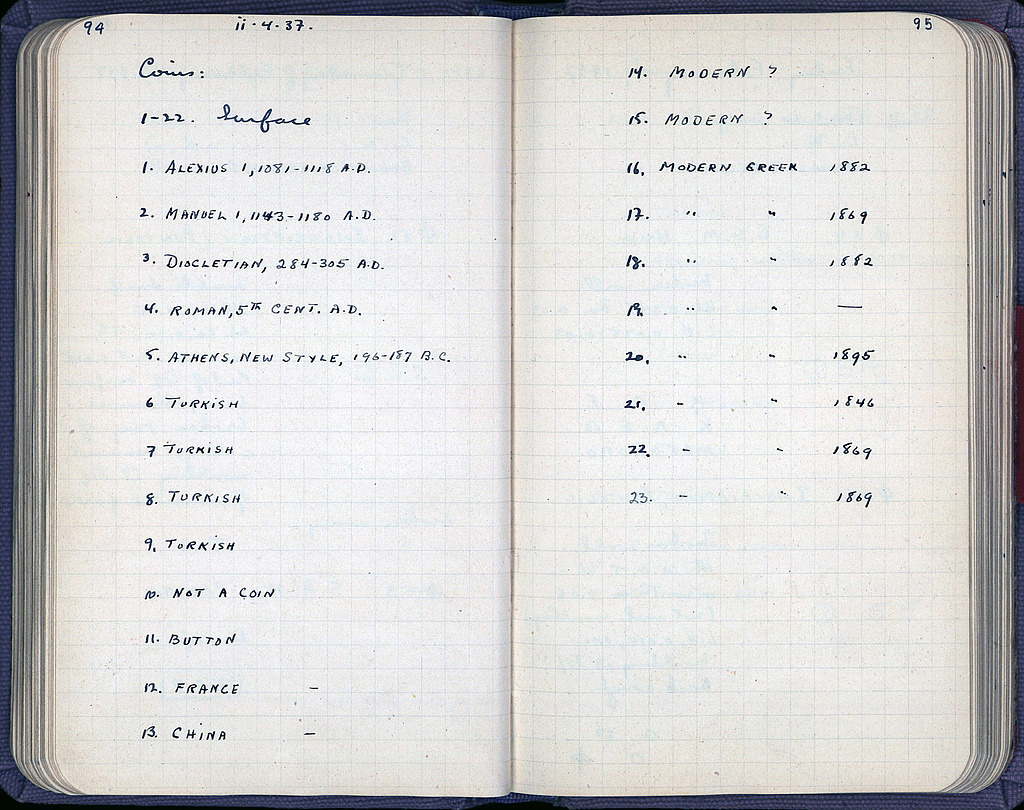 94
ii·4·37.
Coins:
1-22. Surface
1. ALEXIUS 1, 1081-1118 A.D.
2. MANUEL 1, 1143-1180 A.D.
3. DIOCLETIAN, 284-305 A.D.
4. ROMAN, 5TH CENT. A.D.
5. ATHENS, NEW STYLE, 196-187 B.C.
6 TURKISH
7 TURKISH
8. TURKISH
9. TURKISH
10. NOT A COIN
11. BUTTON
12. FRANCE -
13. CHINA -
95
14. MODERN ?
15. MODERN ?
16. MODERN GREEK 1882
17. " " 1869
18. " " 1882
19. " " —
20. " " 1895
21. " " 1846
22. " " 1869
23. " " 1869